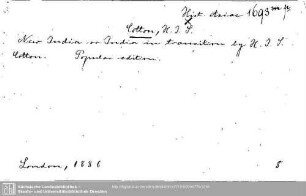 Hist. Asiae 1693
Cotton, H. J. S.
New India or India in transition by H. J. S.
Cotton. Popular edition.
London, 1886 8
Sächsische Landesbibliothek -
Staats- und Universitätsbibliothek Dresden